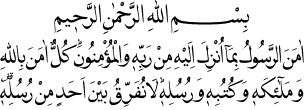 بِسْمِ اللهِ الرَّحْمٰنِ الرَّحِيْمِ
اٰمَنَ الرَّسُوْلُ بِمَاۤ اُنْزِلَ اِلَيْهِ مِنْ رَّبِّهٖ وَالْمُؤْمِنُوْنَ ؕ كُلٌّ اٰمَنَ بِاللهِ
وَ مَلٰٓئِكَتِهٖ وَ كُتُبِهٖ وَ رُسُلِهٖ ۟ لَا نُفَرِّقُ بَيْنَ اَحَدٍ مِّنْ رُّسُلِهٖ ۟